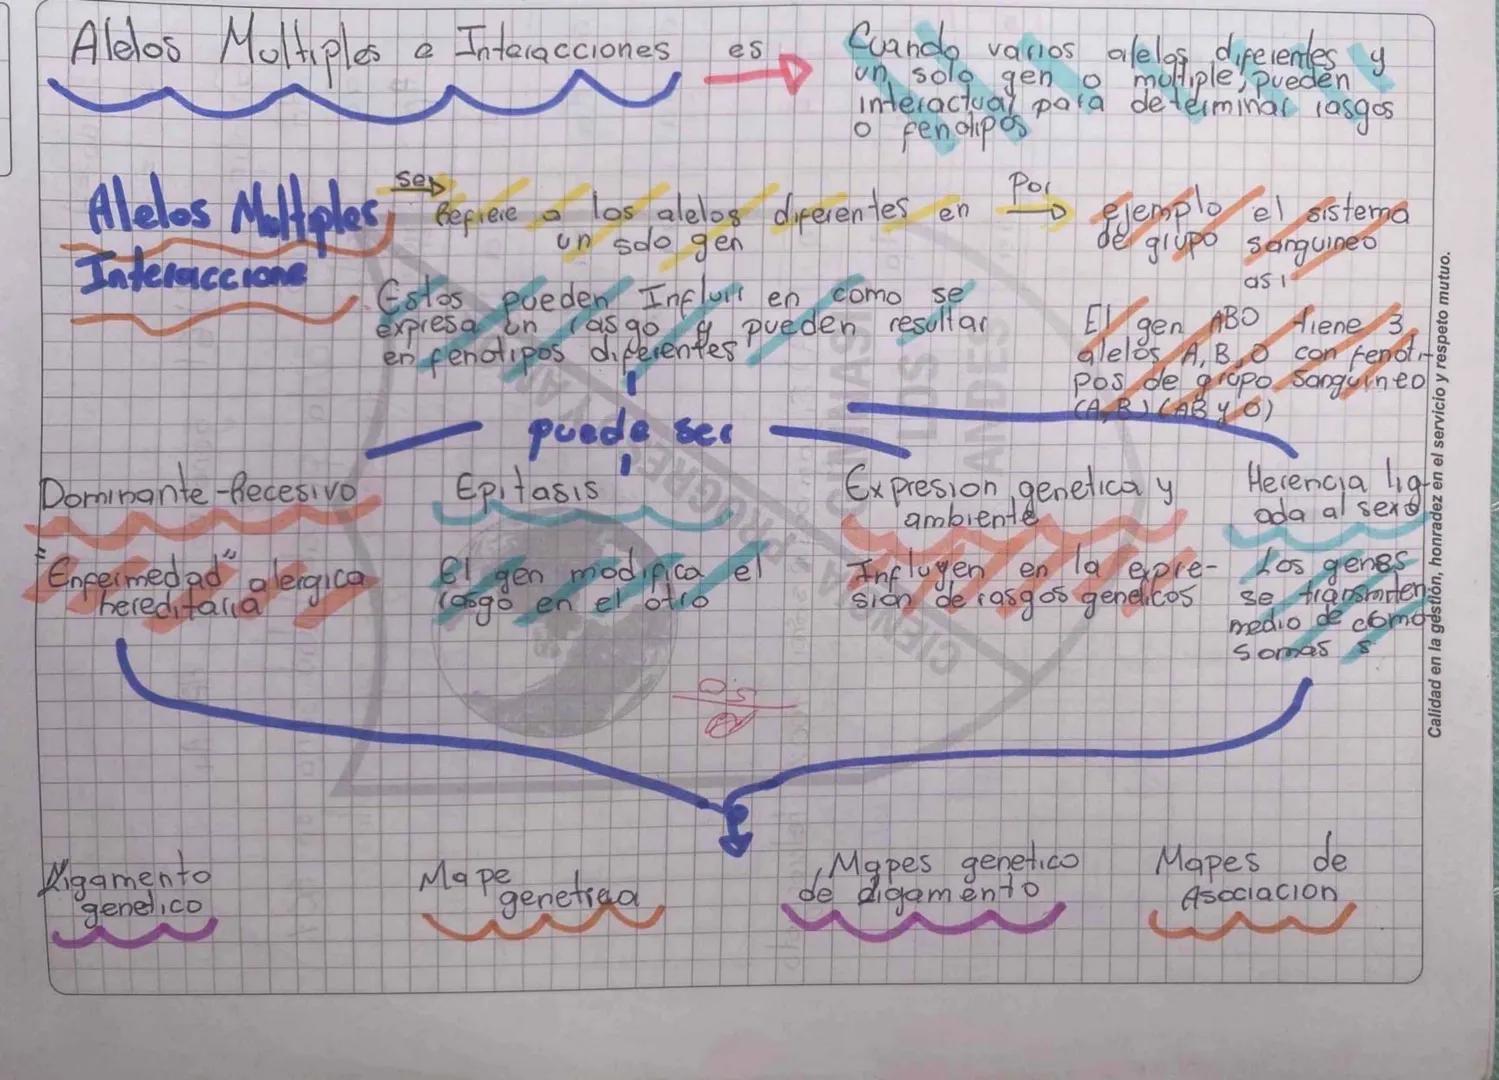 Alelos Multiples e Interacciones es
Cuando varios alelos diferentes y
un solo gen o multiple, pueden
interactuar para determinar rasgos
o fenotipos
Alelos Multiples
Interaccione
se
Refiere a los alelos diferentes en
un solo gen
Por
ejemplo el sistema
de grupo sanguineo
asi
Estos pueden Influir en como se
expresa un rasgo y pueden resultar
en fenotipos diferentes
El gen ABO tiene 3
alelos A, B, O con fenoti-
pos de grupo sanguineo
(A, B) (AB y O)
puede ser
Dominante-Recesivo
"Enfermedad" alergica
hereditaria
Epitasis
El gen modifica el
rasgo en el otro
Expresion genetica y
ambiente
Influyen en la expre-
sion de rasgos geneticos
Herencia lig-
ada al sexo
Los genes
se transmiten
medio de cromo
somas s
Ligamento
genetico
Mape
genetica
Mapes genetico
de digamento
Mapes de
Asociacion
Calidad en la gestión, honradez en el servicio y respeto mutuo.
GIMNASIO
LOS
ANDES
CIENCIA - PROGRESO Y